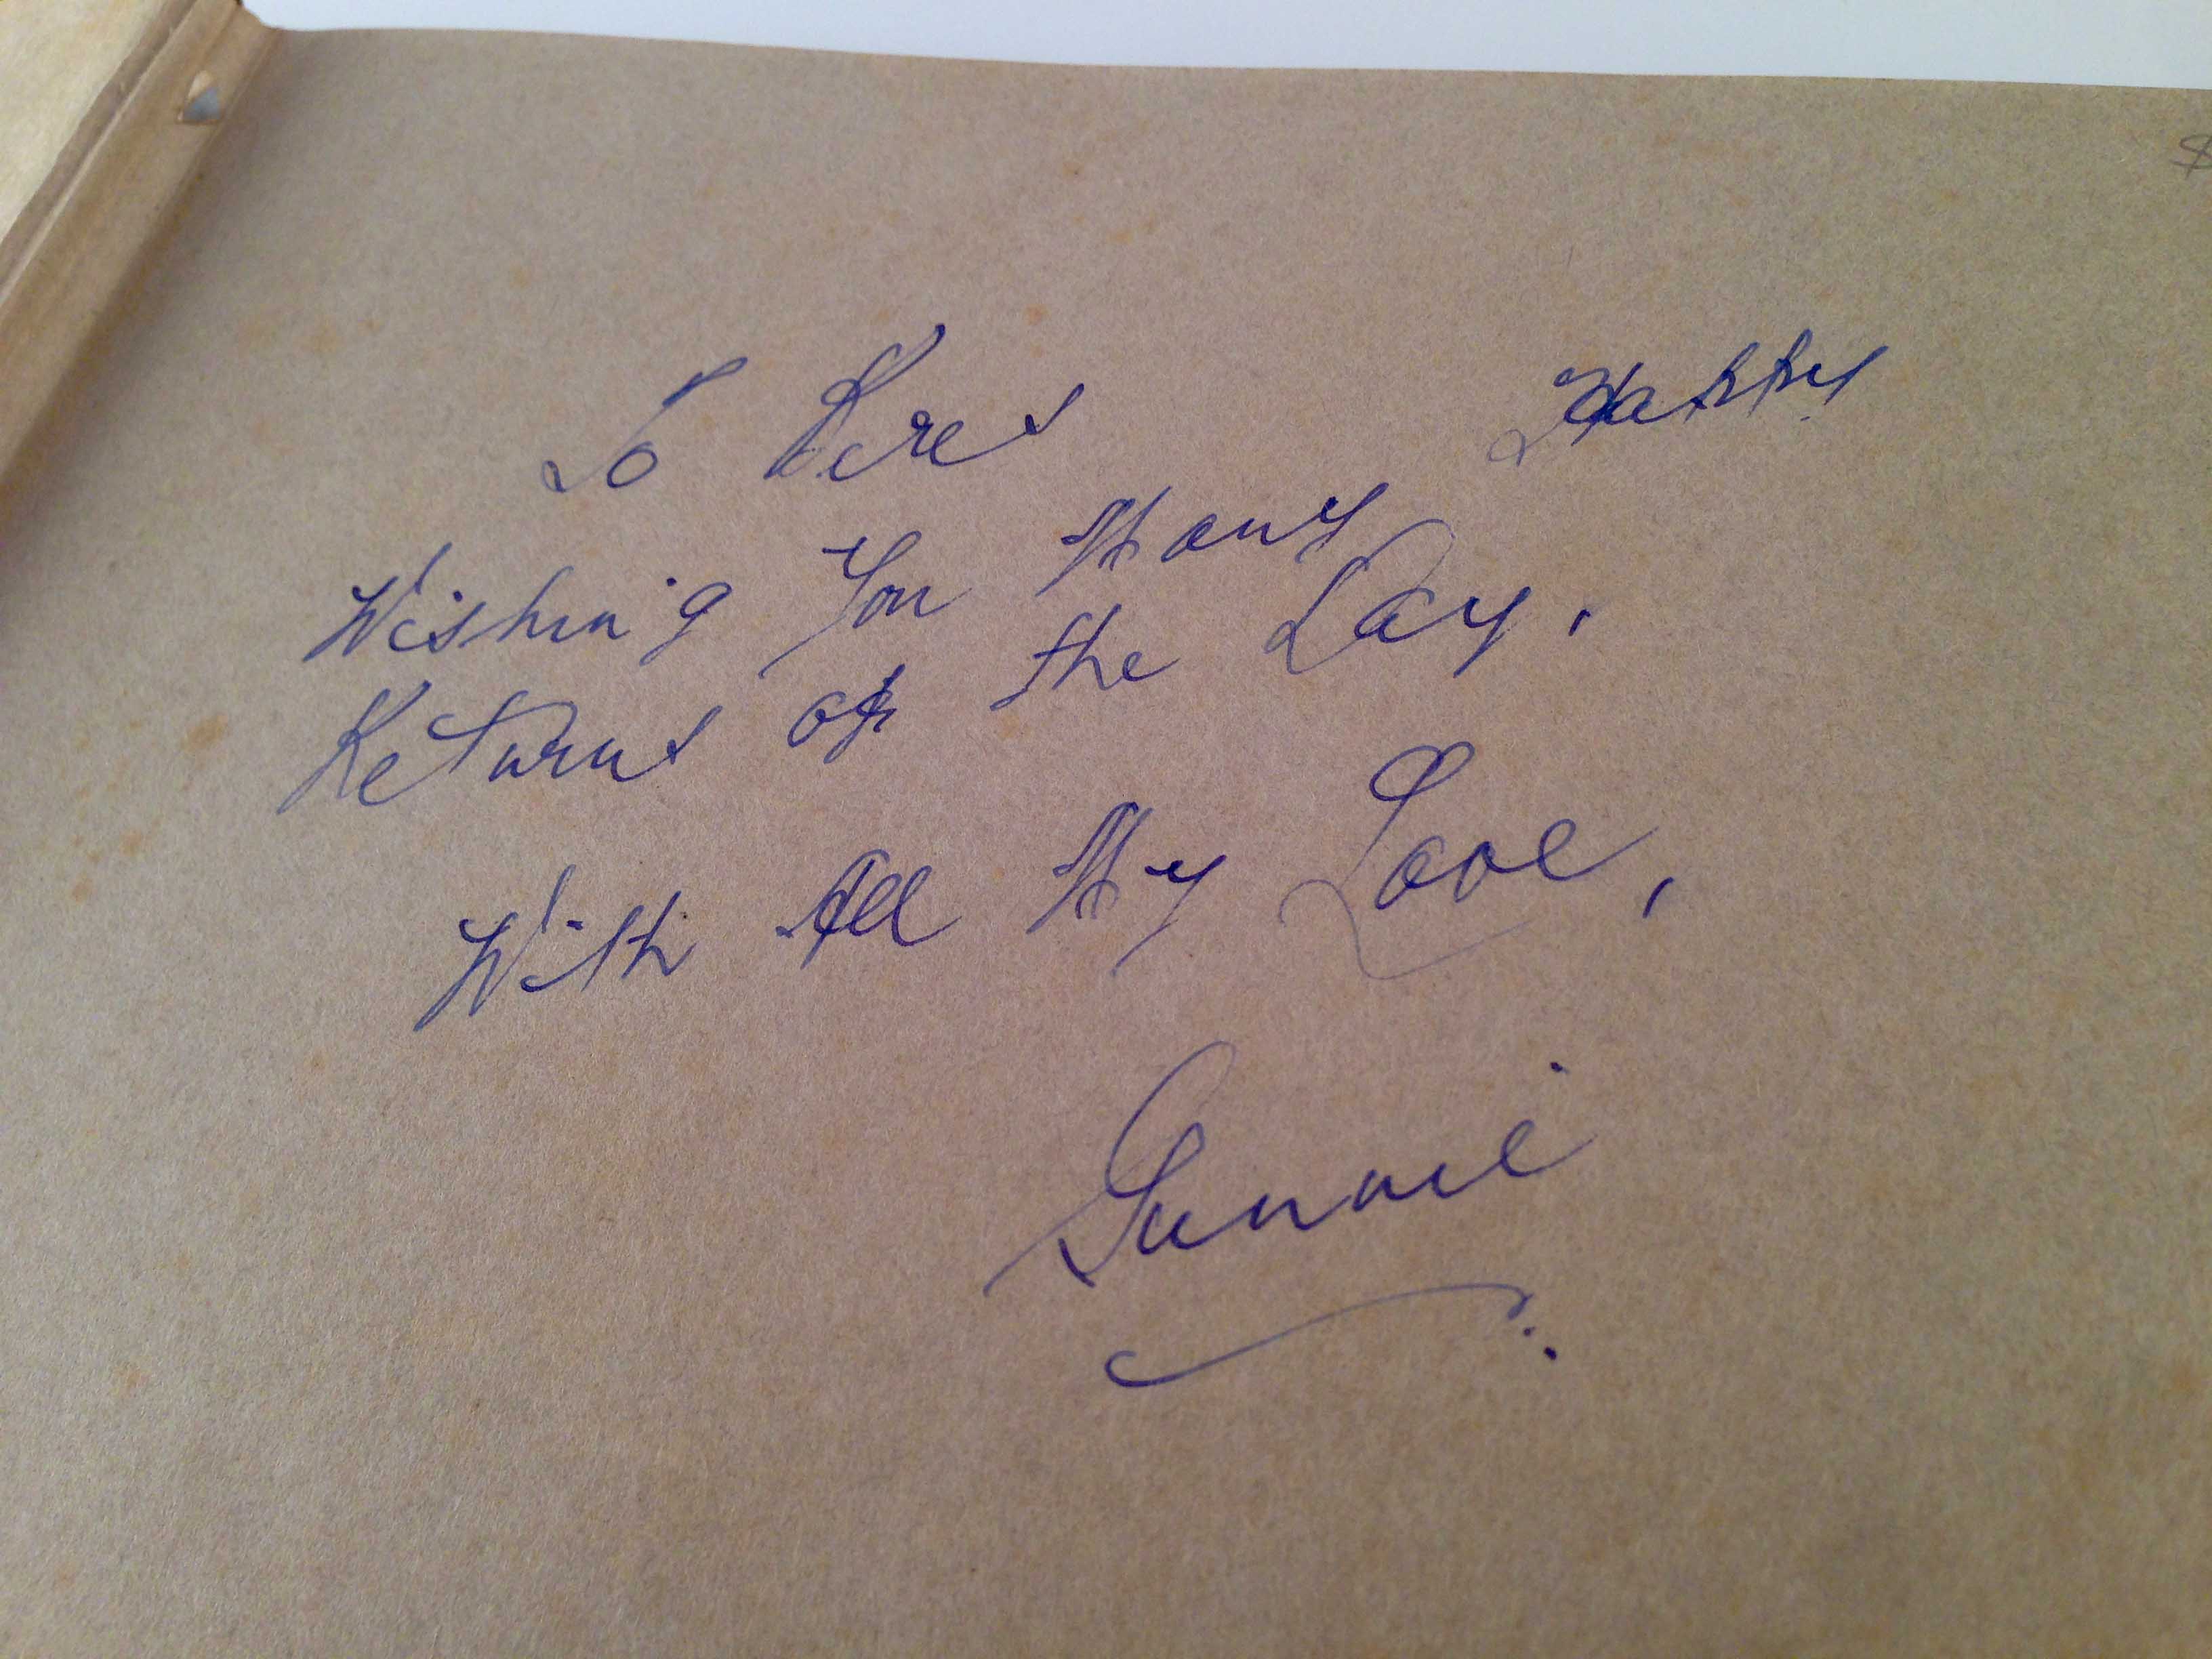 To Keres
Wishing You Many Happy
Returns of the Day.
With All My Love,
Sunnie
$